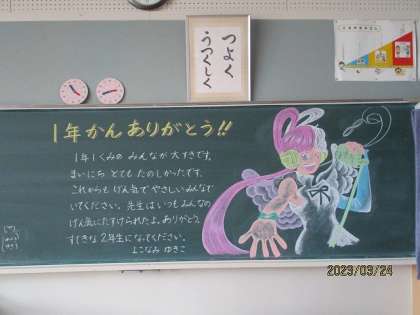 つよく
うつくしく
1年かん ありがとう!!
1年1くみの みんなが 大すきです。
まいにち とても たのしかったです。
これからも げん気で やさしい みんなで
いてください。先生は いつも みんなの
げん気に たすけられたよ。ありがとう。
すてきな 2年生に なってください。
よこなみ ゆきこ
2023/03/24